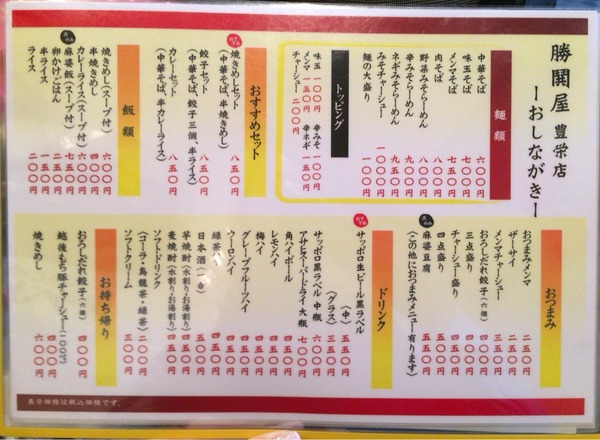 勝鬨屋 豊栄店
ーおしながきー
麺類
中華そば 六〇〇円
味玉そば 七〇〇円
メンマそば 七五〇円
肉そば 八〇〇円
野菜みそらーめん 八〇〇円
辛みそらーめん
ネギみそらーめん 九五〇円
みそチャーシュー 一〇〇〇円
麺の大盛り 一〇〇円
トッピング
味玉 一〇〇円 辛みそ 一〇〇円
メンマ 一五〇円 辛ネギ 一五〇円
チャーシュー 二〇〇円
おすすめセット
おすすめ
焼きめしセット 八五〇円
(中華そば、半焼きめし)
餃子セット 八五〇円
(中華そば、餃子三個、半ライス)
カレーセット 八五〇円
(中華そば、半カレーライス)
飯類
焼きめし(スープ付) 六〇〇円
半焼きめし 四〇〇円
カレーライス(スープ付) 六〇〇円
夜のみ
麻婆飯(スープ付) 七五〇円
卵かけごはん 二五〇円
半ライス 一五〇円
ライス 二〇〇円
おつまみ
おつまみメンマ 二五〇円
ザーサイ 二五〇円
メンマチャーシュー 三五〇円
おろしだれ餃子(六個) 四〇〇円
三点盛り 四五〇円
チャーシュー盛り 四五〇円
四点盛り 五五〇円
夜のみ
麻婆豆腐 五五〇円
(この他におつまみメニュー有ります)
ドリンク
おすすめ
サッポロ生ビール黒ラベル
(中) 五五〇円
(グラス) 三五〇円
サッポロ黒ラベル 中瓶 六〇〇円
アサヒスーパードライ 大瓶 七〇〇円
角ハイボール 四五〇円
レモンハイ 四五〇円
梅ハイ 四五〇円
グレープフルーツハイ 四五〇円
ウーロンハイ 四五〇円
緑茶ハイ 四五〇円
日本酒(一合) 五五〇円
芋焼酎(水割り・お湯割り) 四五〇円
麦焼酎(水割り・お湯割り) 四五〇円
ソフトドリンク 二〇〇円
(コーラ・烏龍茶・緑茶)
ソフトクリーム 三〇〇円
お持ち帰り
おろしだれ餃子(六個) 四〇〇円
越後もち豚チャーシュー(100g) 四〇〇円
焼きめし 六〇〇円
表示価格は税込価格です。